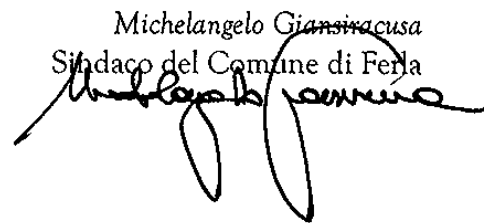 Michelangelo Giansiracusa
Sindaco del Comune di Ferla